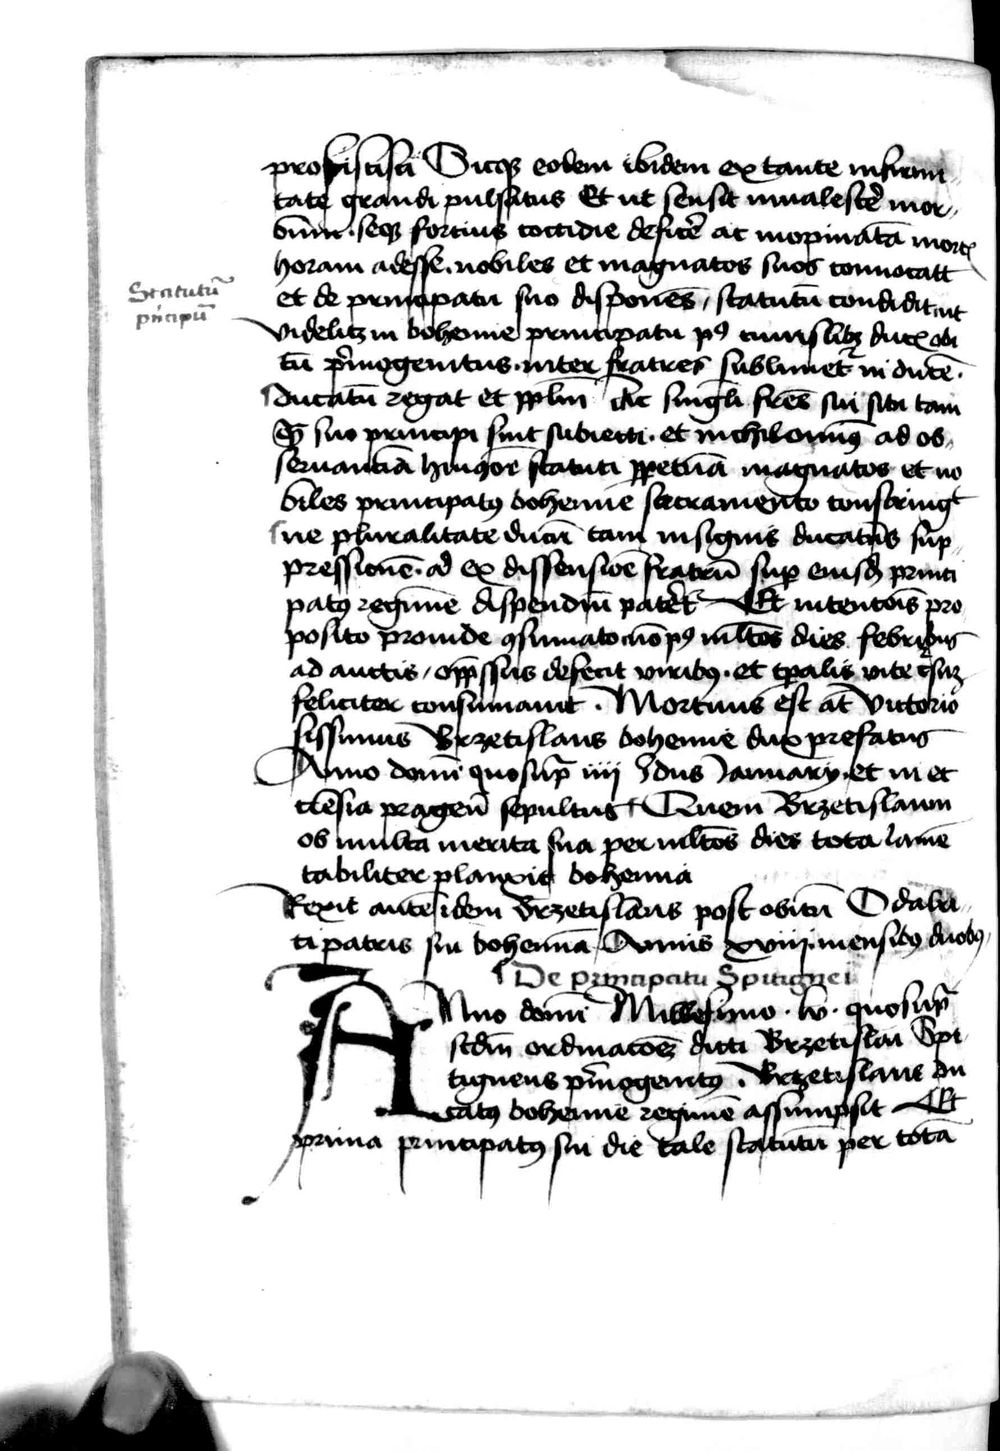 proficisci Sicq; eodem ibidem extante infirmi
tate grandi pulsatus Et ut sensit invalescē mor
bum · seq; fortius cottidie deficē ac inopinatā mortꝭ
horam adesse · nobiles et magnatos suos convocatt
et de principatu suo disponēs / statutū condidit ut
Statutū
pn̄cipū
videlitz in bohemie principatu pꝰ cuiuslibz ducꝭ obi
tū p̄mogenitus · inter fratres sublimet᷑ in ducē ·
Ducatū regat et pplm̄ Ac sinḡli fr̄es sui sibi tam
suo principi sint subiecti · et nichilominꝰ ad ob
servantiā huiꝰmōi statuti ꝑpetuā magnatos et no
biles principatꝰ bohemie sacramento constringt
ne pluralitate ducū tam insignis ducatus sup
pressionē · ac ex dissensioē fratrū sup eiusd principi
patꝰ regimē dispendiū patēt᷑ Et intentōis pro
posito proinde ꝯsumato nō pꝰ ml̄tos dies febribus
ad auctis / opp̄ssus defecit viribꝰ · et tp̄alis vite cursūz
feliciter consumavit · Mortuus est aūt Victorio
sissimus Brzetislaus bohemie dux prefatus
Anno domī quosup̄ iiij Idus Ianuarij · et in ec
clesia pragen̄ sepultus Quem Brzetislaum
ob multa merita sua per ml̄tos dies tota lamē
tabiliter planxit bohemia
Rexit autē idem Brzetislaus post obitū Odalri
ci patris sui bohemiā Annis xviij · mensibꝰ duobꝰ
De principatu Spitignei
Anno domī Millesimo · lv · quosup̄
scdm̄ ordinacōez dicti Brzetislai Spi
tigneus p̄mogenitꝰ · Brzetislaus du
catꝰ bohemie regimē assumpsit Et
prima principatꝰ sui die tale statutū per totā